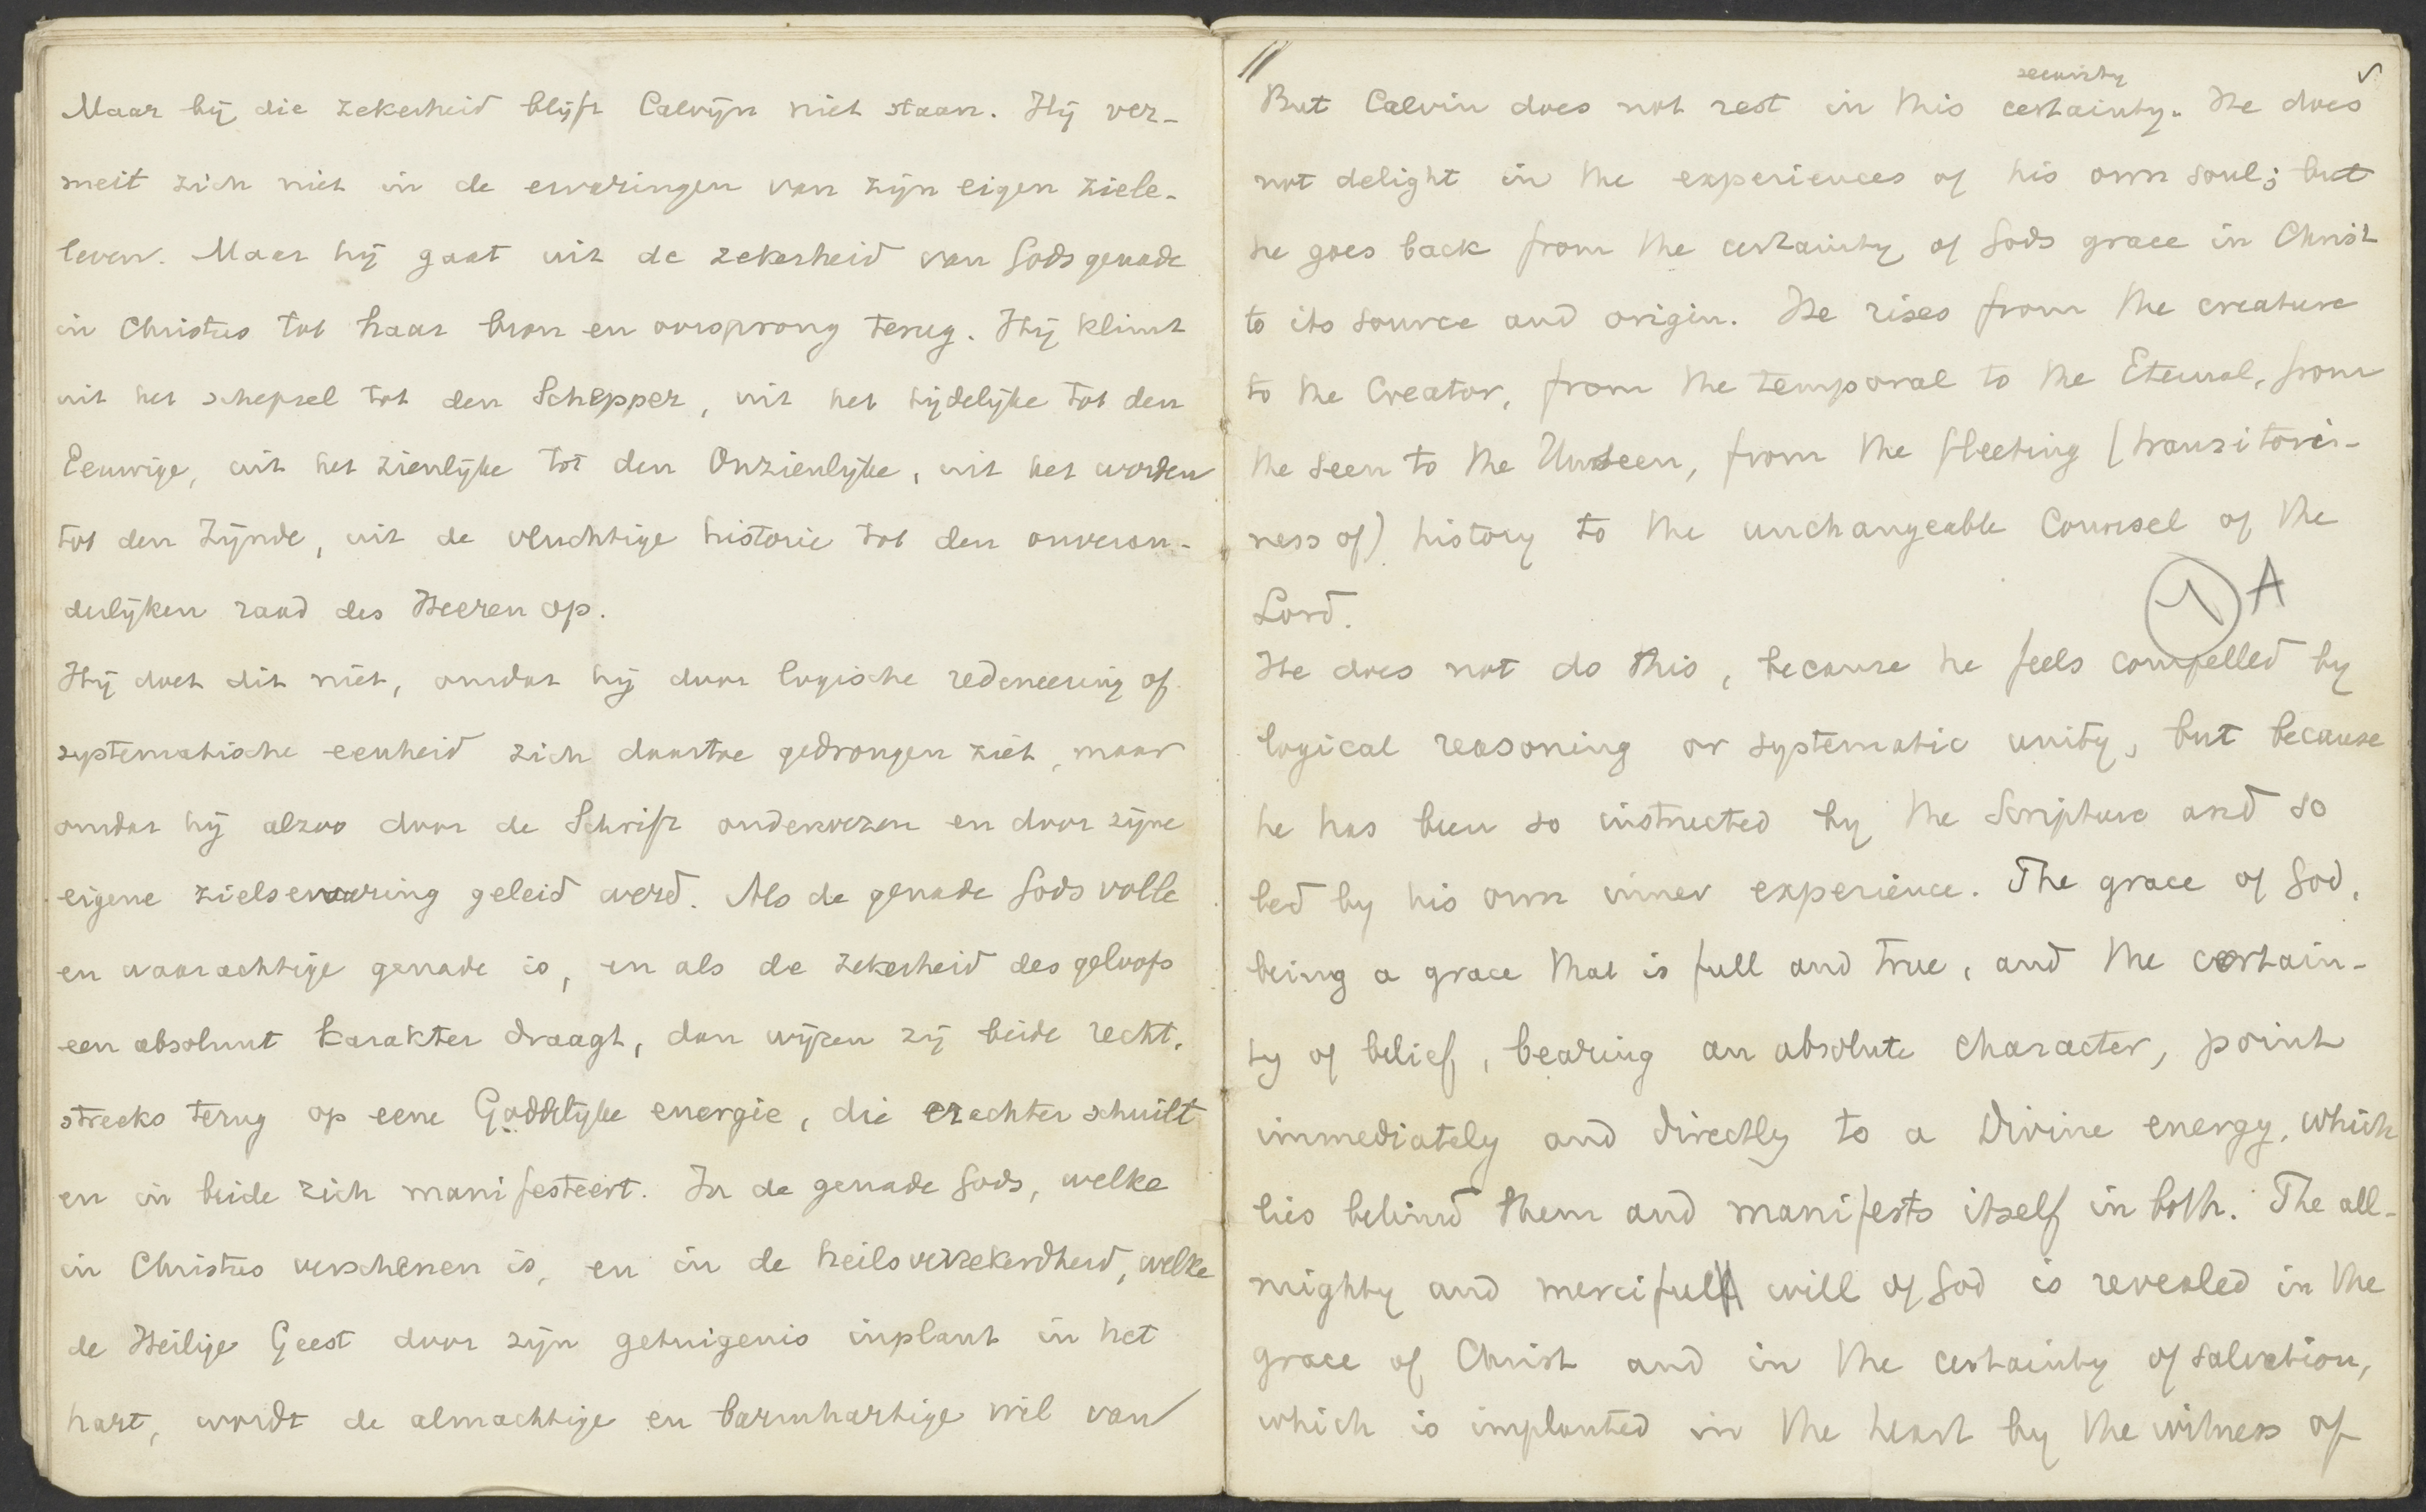 Maar bij die zekerheid blijft Calvijn niet staan. Hij ver-
meit zich niet in de ervaringen van zijn eigen ziele-
leven. Maar hij gaat uit de zekerheid van Gods genade
in Christus tot haar bron en oorsprong terug. Hij klimt
uit het schepsel tot den Schepper, uit het tijdelijke tot den
Eeuwige, uit het zienlijke tot den Onzienlijke, uit het worden
tot den Zijnde, uit de vluchtige historie tot den onveran-
derlijken raad des Heeren op.
Hij doet dit niet, omdat hij door logische redeneering of
systematische eenheid zich daartoe gedrongen ziet, maar
omdat hij alzoo door de Schrift onderwezen en door zijne
eigene zielservaring geleid werd. Als de genade Gods volle
en waarachtige genade is, en als de zekerheid des geloofs
een absoluut karakter draagt, dan wijzen zij beide recht-
streeks terug op eene Goddelijke energie, die erachter schuilt
en in beide zich manifesteert. In de genade Gods, welke
in Christus verschenen is, en in de heilsverzekerdheid, welke
de Heilige Geest door zijn getuigenis inplant in het
hart, wordt de almachtige en barmhartige wil van
11
security
But Calvin does not rest in this certainty. He does
not delight in the experiences of his own soul; but
he goes back from the certainty of Gods grace in Christ
to its source and origin. He rises from the creature
to the Creator, from the temporal to the Eternal, from
the seen to the Unseen, from the fleeting (transitori-
ness of) history to the unchangeable Counsel of the
Lord.
1 A
He does not do this, because he feels compelled by
logical reasoning or systematic unity, but because
he has been so instructed by the Scripture and so
led by his own inner experience. The grace of God,
being a grace that is full and true, and the certain-
ty of belief, bearing an absolute character, point
immediately and directly to a Divine energy, which
lies behind them and manifests itself in both. The all-
mighty and merciful will of God is revealed in the
grace of Christ and in the certainty of salvation,
which is implanted in the heart by the witness of